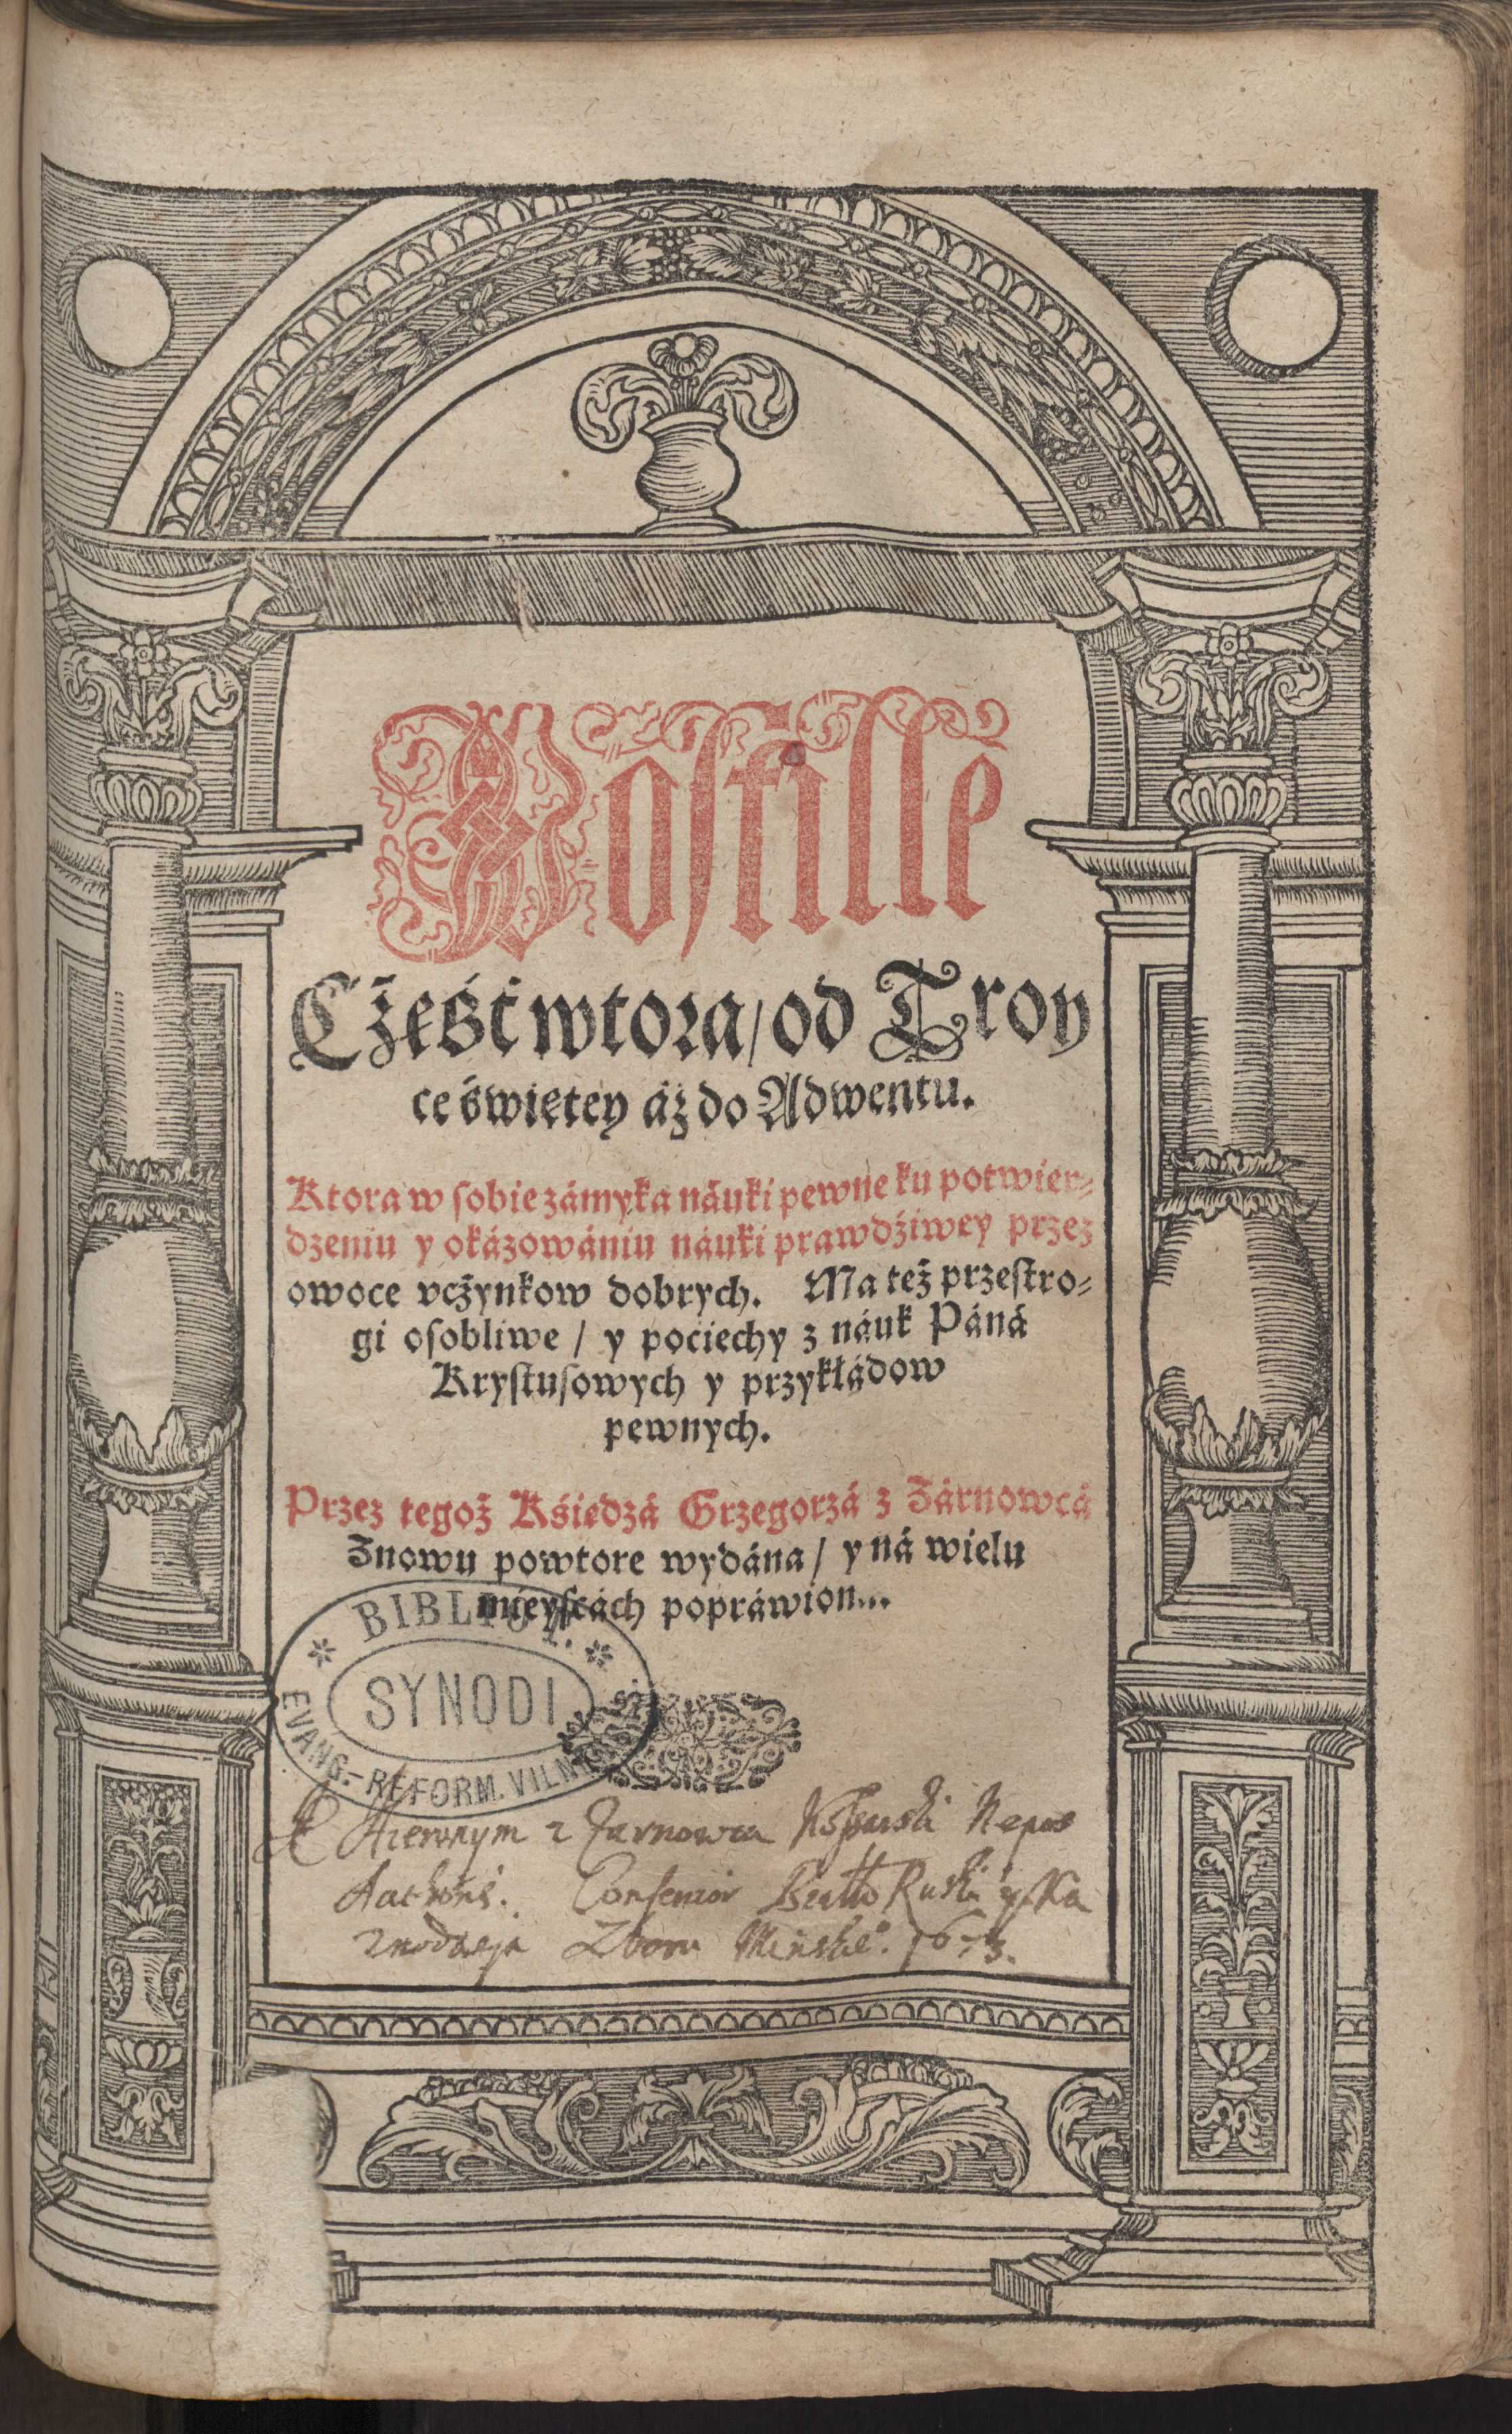 Postille
Cżęść wtora / od Troy
ce świętey áż do Adwentu.
Ktora w sobie zámyka náuki pewne ku potwier⸗
dzeniu y okázowániu náuki prawdźiwey przez
owoce vcżynkow dobrych. Ma też przestro⸗
gi osobliwe / y pociechy z náuk Páná
Krystusowych y przykłádow
pewnych.
Przez tegoż Kśiędzá Grzegorzá z Żárnowcá
Znowu powtore wydána / y ná wielu
mieyscách popráwion...
BIBLIOT.
SYNODI
EVANG.-REFORM. VILN
Hieronym z Żarnowca Nepos
Authoris. Consenior Ruski y
Zboru Minske. 1673.